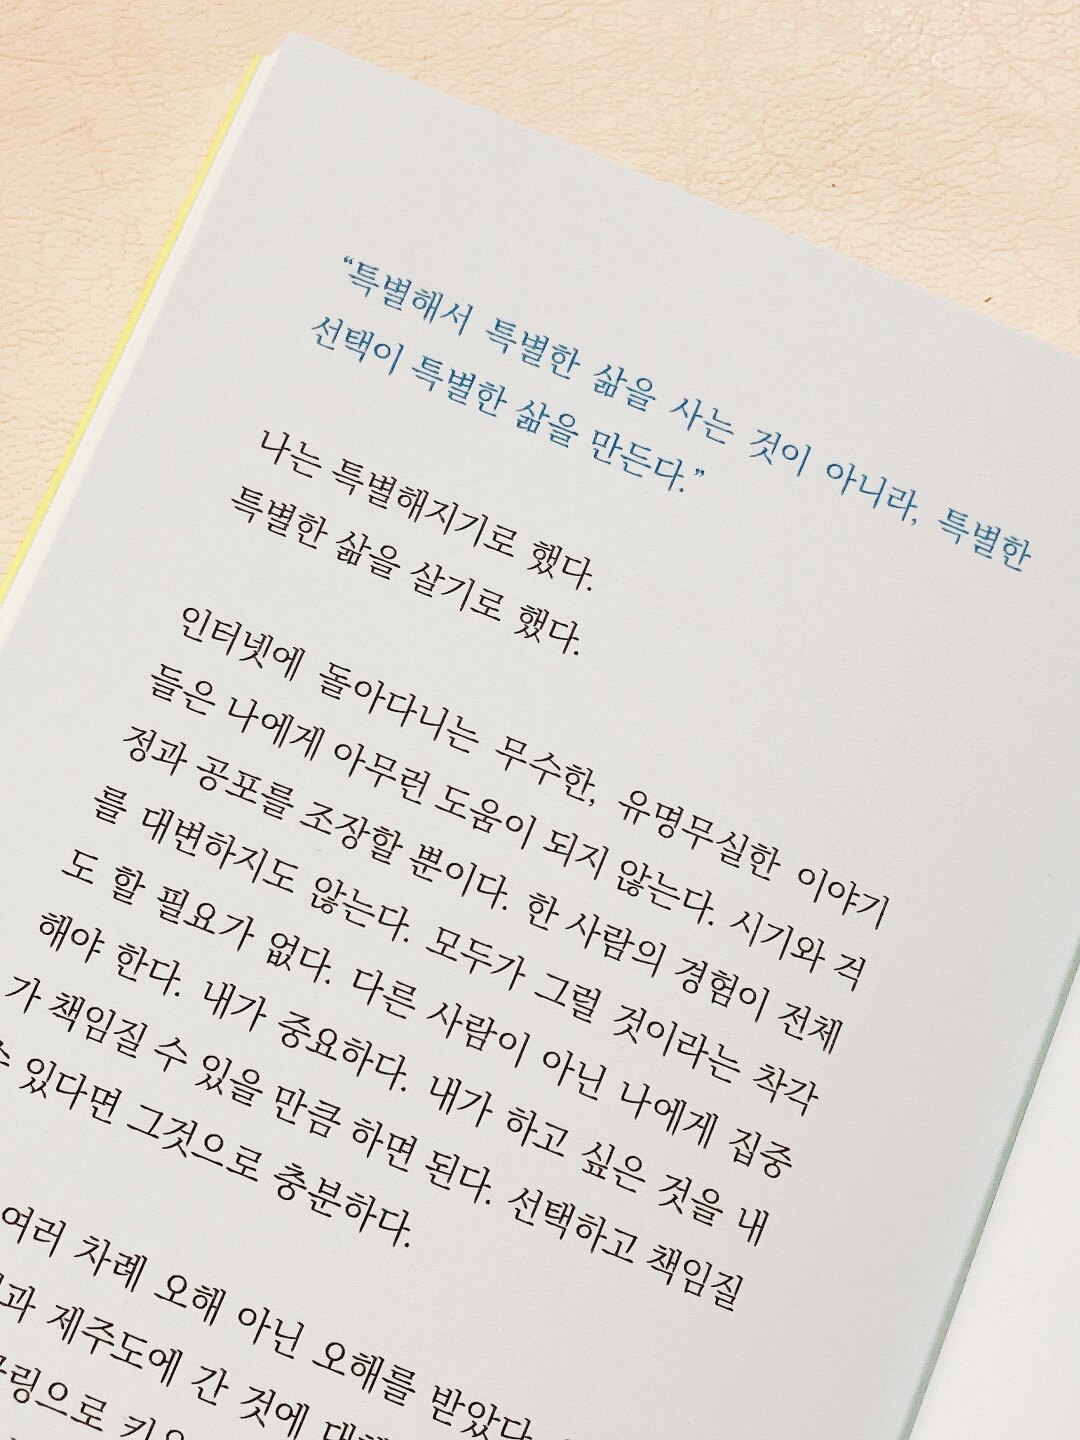 “특별해서 특별한 삶을 사는 것이 아니라, 특별한
선택이 특별한 삶을 만든다.”
나는 특별해지기로 했다.
특별한 삶을 살기로 했다.
인터넷에 돌아다니는 무수한, 유명무실한 이야기
들은 나에게 아무런 도움이 되지 않는다. 시기와 걱
정과 공포를 조장할 뿐이다. 한 사람의 경험이 전체
를 대변하지도 않는다. 모두가 그럴 것이라는 착각
도 할 필요가 없다. 다른 사람이 아닌 나에게 집중
해야 한다. 내가 중요하다. 내가 하고 싶은 것을 내
가 책임질 수 있을 만큼 하면 된다. 선택하고 책임질
수 있다면 그것으로 충분하다.
여러 차례 오해 아닌 오해를 받았다.
제주도에 간 것에